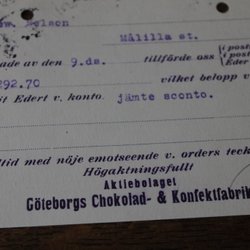 Nelson
Målilla st.
i post
ade av den 9.ds. tillförde oss i post
Eder
292.70 vilket belopp v
it Edert v. konto. jämte sconto.
tid med nöje emotseende v. orders teck
Högaktningsfullt
Aktiebolaget
Göteborgs Chokolad- & Konfektfabrik